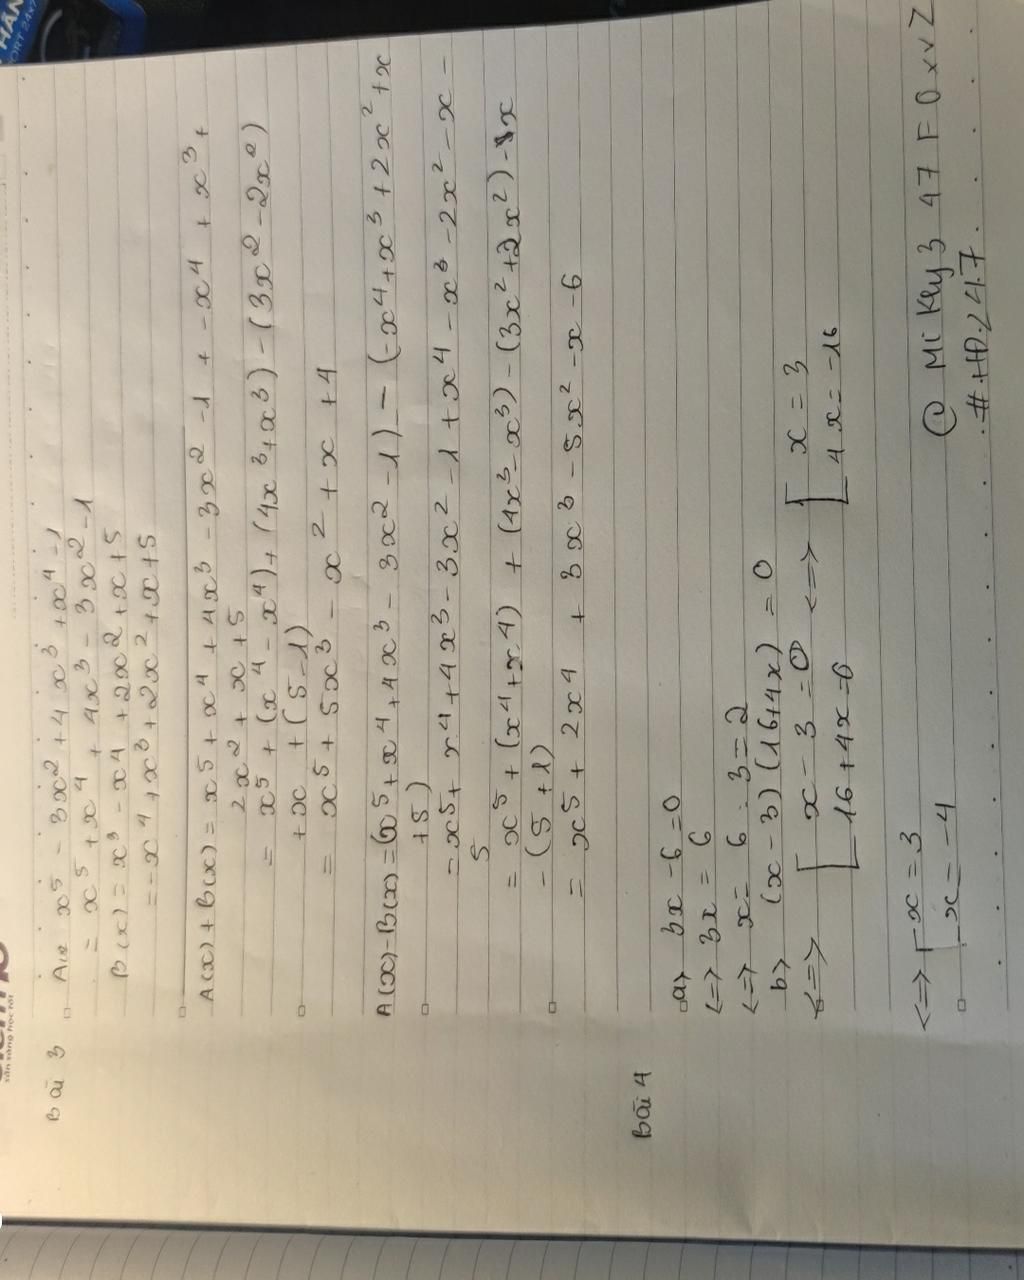 Bài 3
A(x) x⁵ - 3x² + 4x³ + x⁴ - 1
= x⁵ + x⁴ + 4x³ - 3x² - 1
B(x) = x³ - x⁴ + 2x² + x + 5
= - x⁴ + x³ + 2x² + x + 5
A(x) + B(x) = x⁵ + x⁴ + 4x³ - 3x² - 1 + - x⁴ + x³ +
2x² + x + 5
= x⁵ + (x⁴ - x⁴) + (4x³ + x³) - (3x² - 2x²)
+ x + (5 - 1)
= x⁵ + 5x³ - x² + x + 4
A(x) - B(x) = (x⁵ + x⁴ + 4x³ - 3x² - 1) - (-x⁴ + x³ + 2x² + x
+ 5)
= x⁵ + x⁴ + 4x³ - 3x² - 1 + x⁴ - x³ - 2x² - x -
5
= x⁵ + (x⁴ + x⁴) + (4x³ - x³) - (3x² + 2x²) - x
- (5 + 1)
= x⁵ + 2x⁴ + 3x³ - 5x² - x - 6
Bài 4
a> 3x - 6 = 0
<=> 3x = 6
<=> x = 6 : 3 = 2
b> (x - 3)(16 + 4x) = 0
<=> [ x - 3 = 0 <=> [ x = 3
[ 16 + 4x = 0 [ 4x = -16
<=> [ x = 3
[ x = -4
@ Mi Key 3 47 F 0 x v Z
# HD247